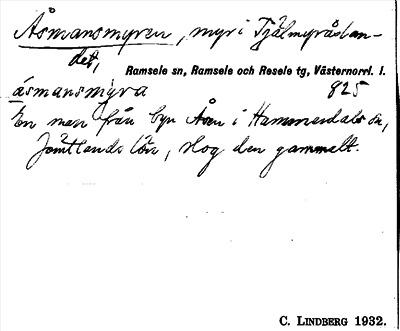 Åsmansmyren, myr i Tjälmyråslan-
det,
Ramsele sn, Ramsele och Resele tg, Västernorrl. l.
åsmansmỳra 825
En man från byn Åsen i Hammerdals sn,
Jämtlands län, slog den gammelt.
C. LINDBERG 1932.